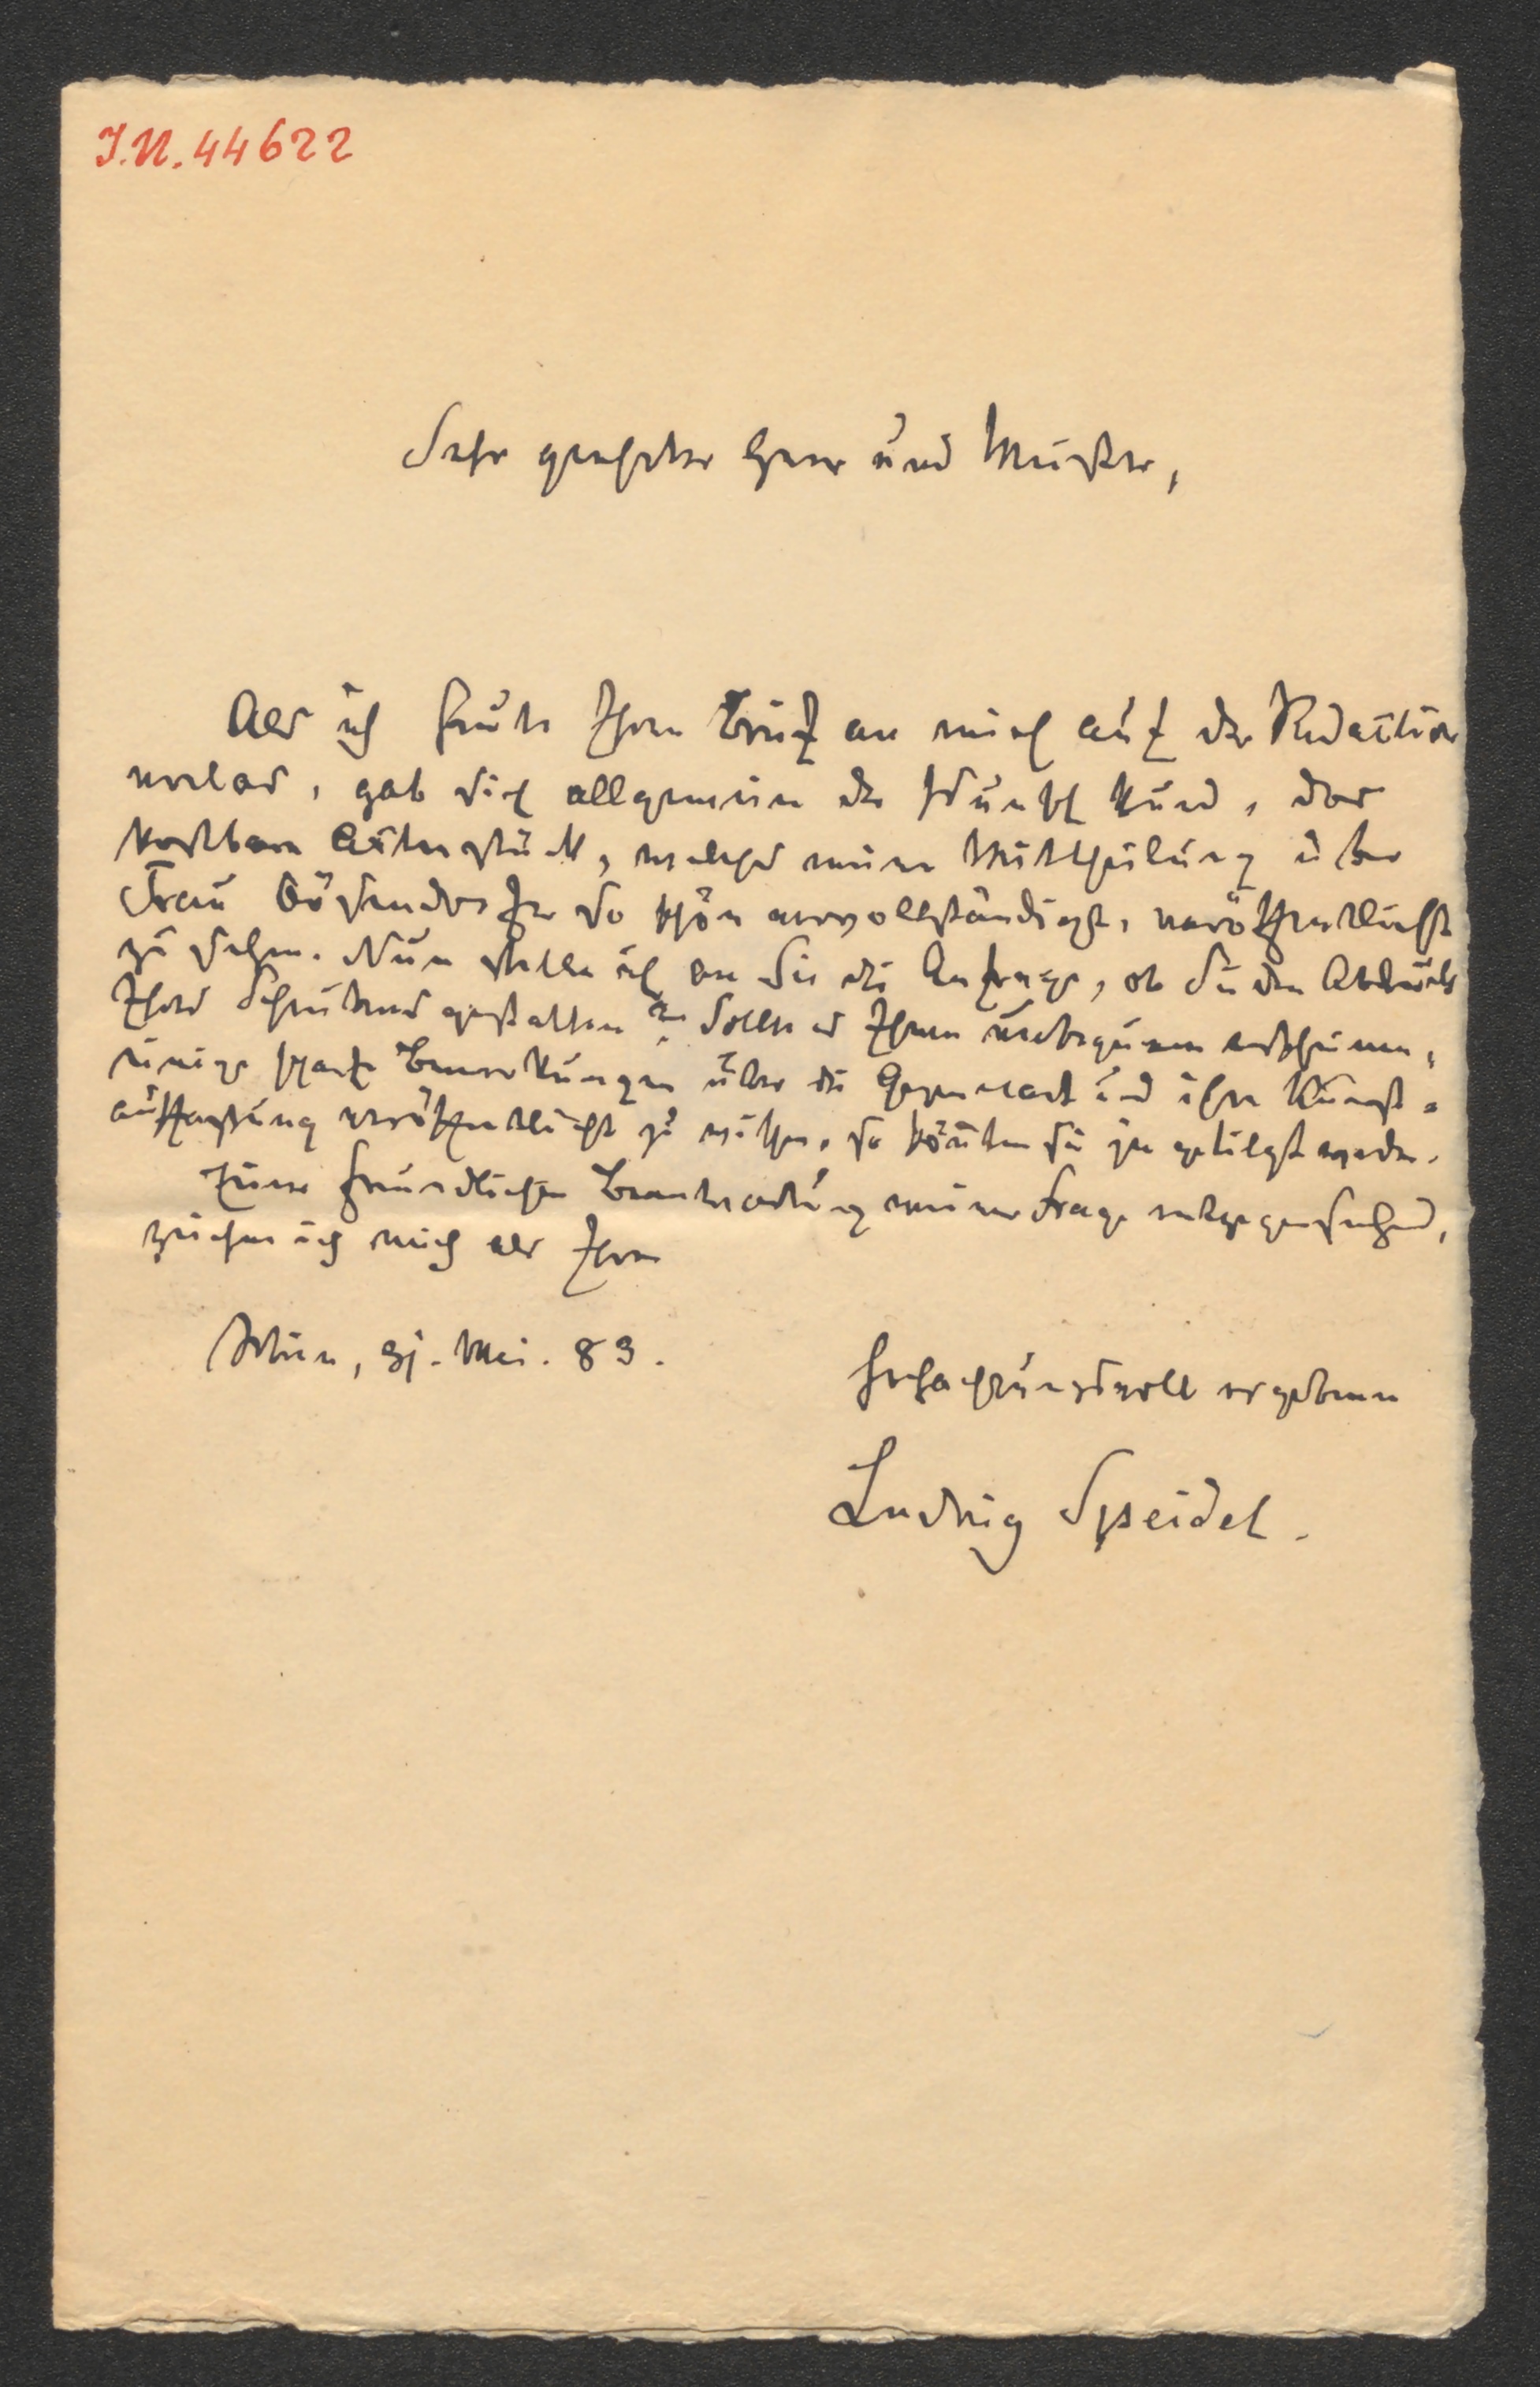 I.N. 44622
Sehr geehrter Herr und Meister,
Als ich heute Ihren Brief an mich auf der Redaction
vorlas, gab sich allgemein der Wunsch kund, das
kostbare Actenstück, welches meine Mittheilung über
Frau Bösendorfer so schön vervollständigt, veröffentlicht
zu sehen. Nun stelle ich an Sie die Anfrage, ob Sie den Abdruck
Ihres Schreibens gestatten? Sollte es Ihnen unbequem erscheinen,
einige scharfe Bemerkungen über die Gegenwart und ihre Kunst-
auffassung veröffentlicht zu wissen, so könnten sie ja getilgt werden.
Einer freundlichen Beantwortung meiner Frage entgegensehend,
zeichne ich mich als Ihren
Wien, 31. Mai. 83.
hochachtungsvoll ergebenen
Ludwig Speidel.